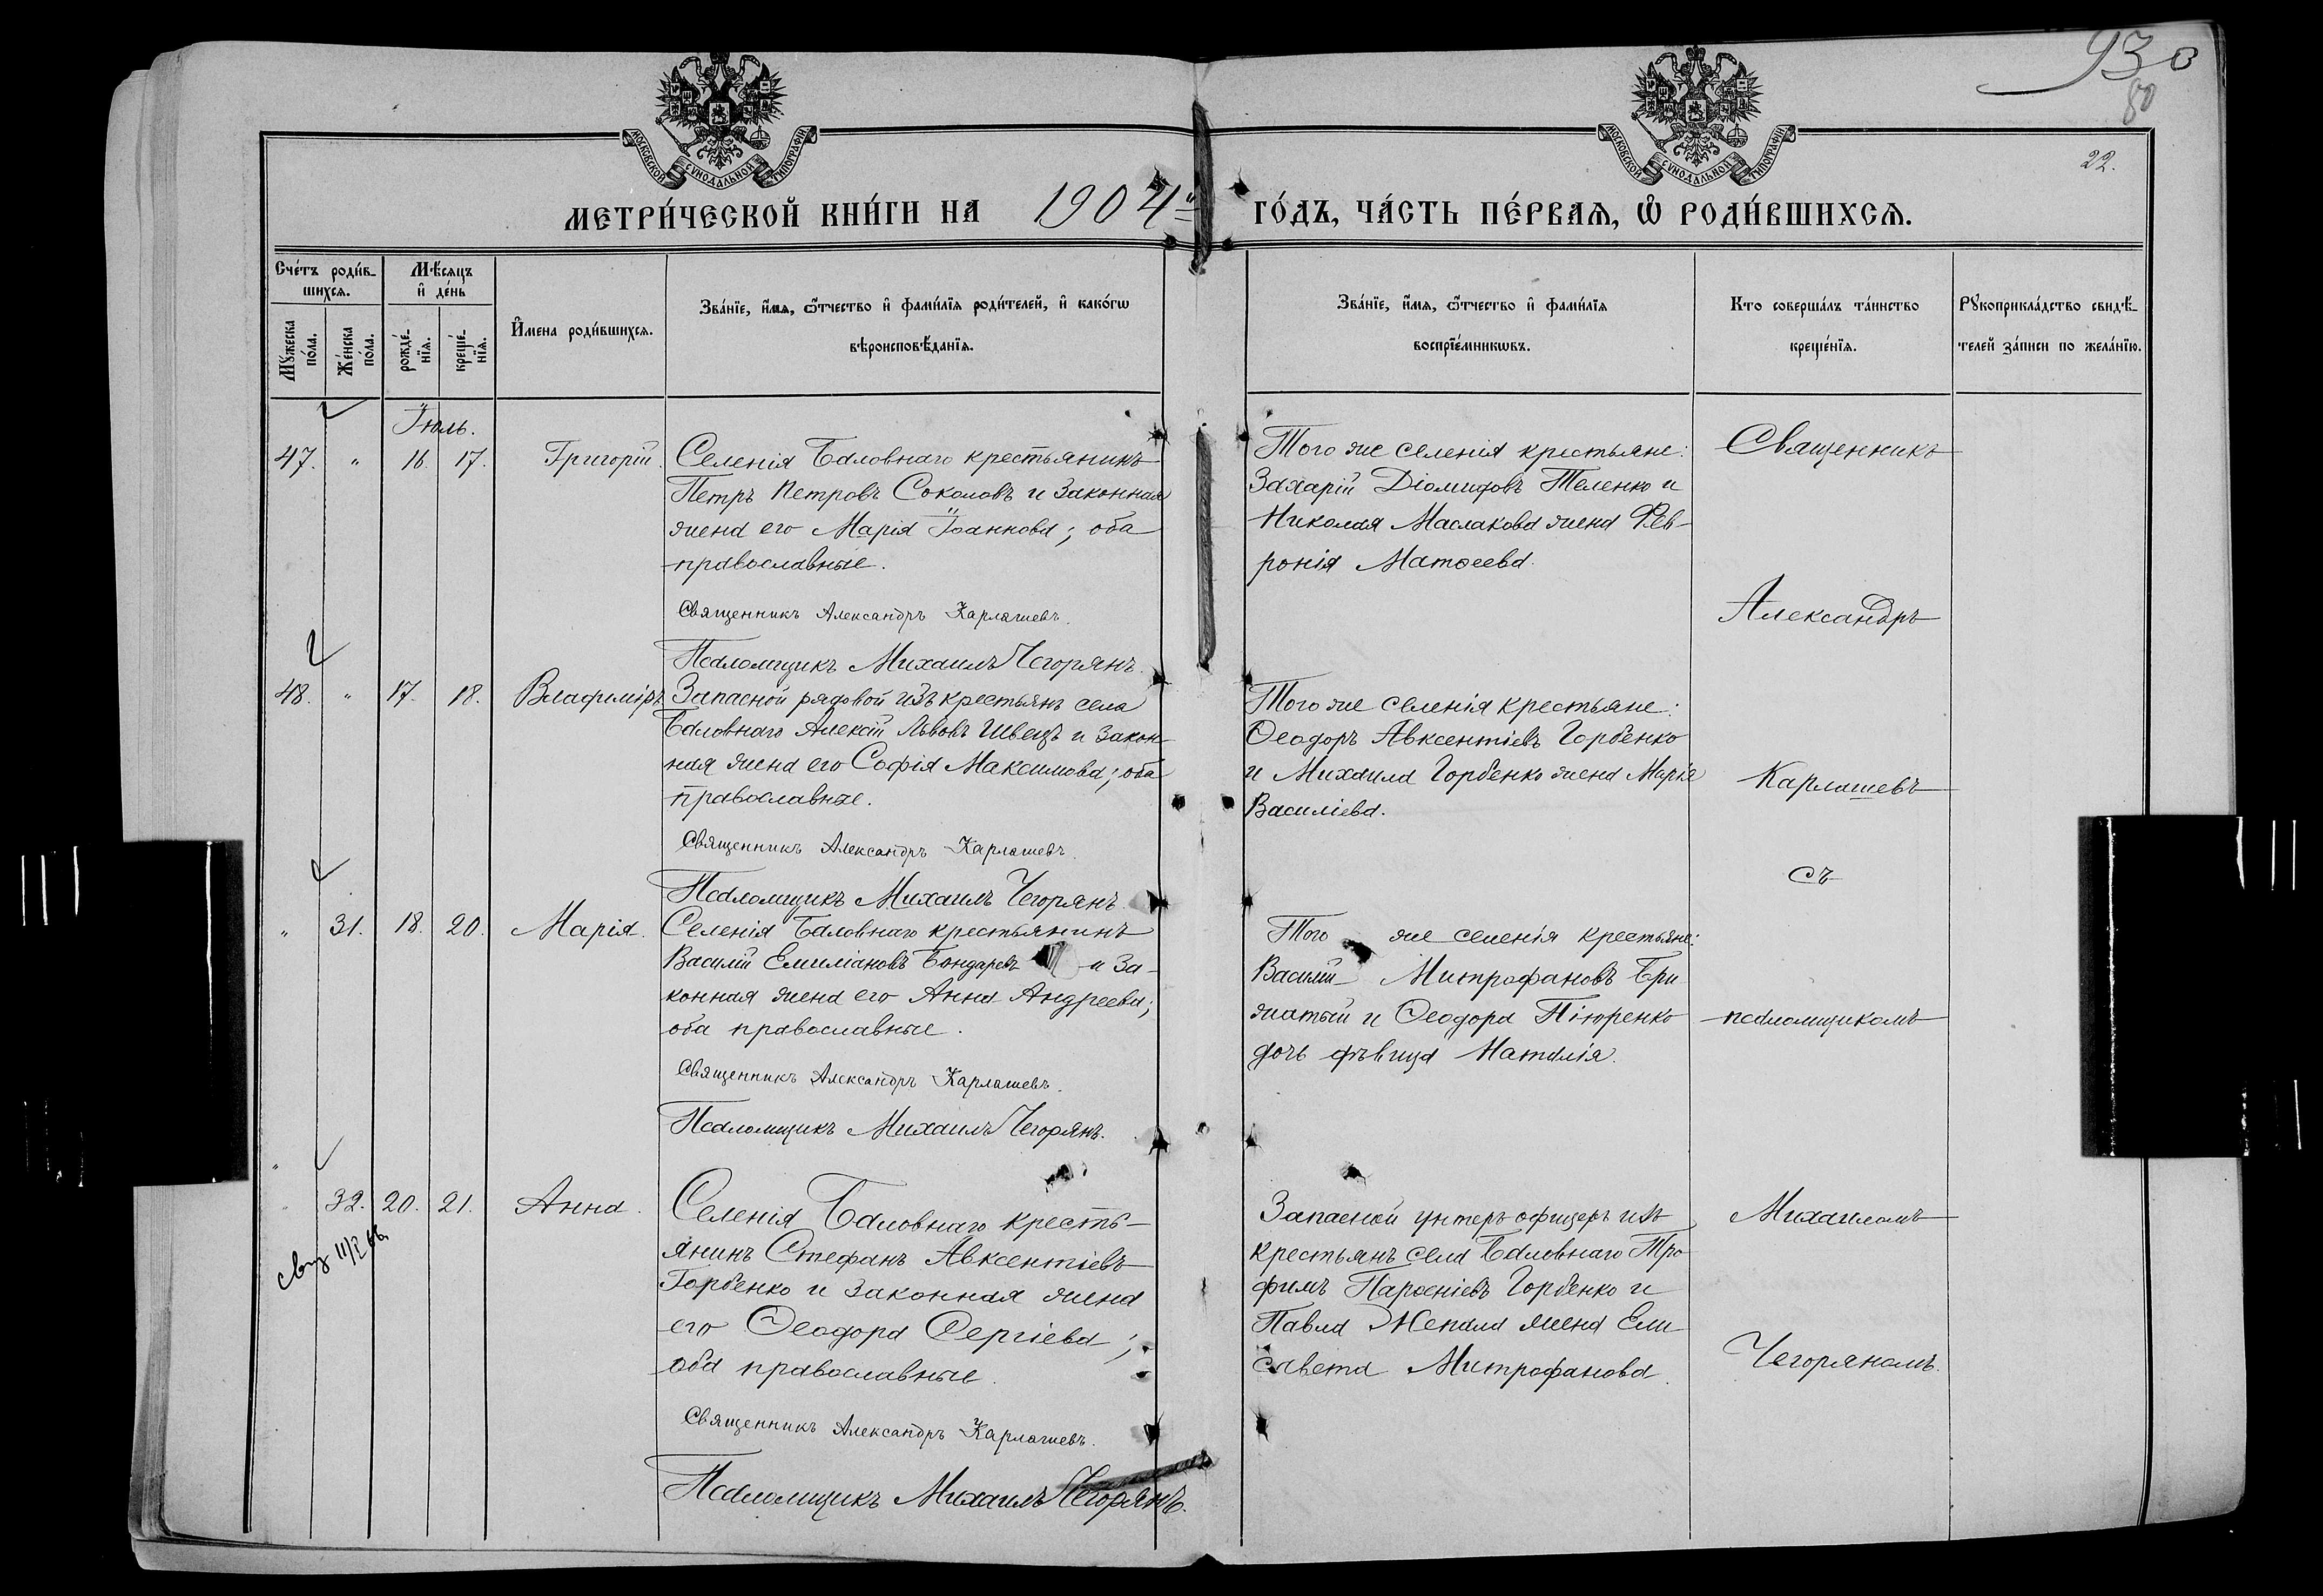 930
80
22.
МОСКОВСКОЙ СѴНОДАЛЬНОЙ ТИПОГРАФІИ
МОСКОВСКОЙ СѴНОДАЛЬНОЙ ТИПОГРАФІИ
МЕТРИ́ЧЕСКОЙ КНИ́ГИ НА 1904й ГО́ДЪ, ЧА́СТЬ ПЕ́РВАѦ, Ѡ҆ РОДИ́ВШИХСѦ.
Сче́тъ роди́в-
шихсѧ.
Мѣ́сѧцъ
и҆ де́нь
Мꙋ́жеска
по́ла.
Же́нска
по́ла.
рожде́-
нїѧ.
креще́-
нїѧ.
И҆мена роди́вшихсѧ.
Зва́нїе, и҆́мѧ, ѻ҆́тчество и҆ фами́лїѧ роди́телей, и҆ како́гѡ
вѣроисповѣ́данїѧ.
Зва́нїе, и҆́мѧ, ѻ҆́тчество и҆ фами́лїѧ
воспрїе́мникѡвъ.
Кто соверша́лъ та́инство
креще́нїѧ.
Рꙋкоприкла́дство свидѣ́-
телей за́писи по жела́нїю.
Іюль.
47. " 16 17. Григорій. Селенія Баловнаго крестьянинъ
Петръ Петровъ Соколовъ и законная
жена его Марія Іоаннова; оба
православные.
Священникъ Александръ Карлашевъ.
Псаломщикъ Михаилъ Чегорянъ.
Того же селенія крестьяне:
Захарій Діомидовъ Теленко и
Николая Маслакова жена Фев-
ронія Матѳеева.
48. " 17. 18. Владиміръ. Запасной рядовой изъ крестьянъ села
Баловнаго Алексій Львовъ Швецъ и закон-
ная жена его Софія Максимова; оба
православные.
Священникъ Александръ Карлашевъ.
Псаломщикъ Михаилъ Чегорянъ.
Того же селенія крестьяне:
Ѳеодоръ Авксентіевъ Горбенко
и Михаила Горбенко жена Марія
Василіева.
" 31. 18. 20. Марія. Селенія Баловнаго крестьянинъ
Василій Емиліановъ Бондаревъ и за-
конная жена его Анна Андреева;
оба православные.
Священникъ Александръ Карлашевъ.
Псаломщикъ Михаилъ Чегорянъ.
Того же селенія крестьяне:
Василій Митрофановъ Бри-
жатый и Ѳеодора Пьюренко
дочь дѣвица Наталія.
" 32. 20. 21. Анна. Селенія Баловнаго кресть-
янинъ Стефанъ Авксентіевъ
Горбенко и законная жена
его Ѳеодора Сергіева;
оба православные.
Священникъ Александръ Карлашевъ.
Псаломщикъ Михаилъ Чегорянъ.
Запасной унтеръ офицеръ изъ
крестьянъ села Баловнаго Тро-
фимъ Парѳеніевъ Горбенко и
Павла Жепала жена Ели-
савета Митрофанова.
Священникъ
Александръ
Карлашевъ
съ
псаломщикомъ
Михаиломъ
Чегоряномъ.